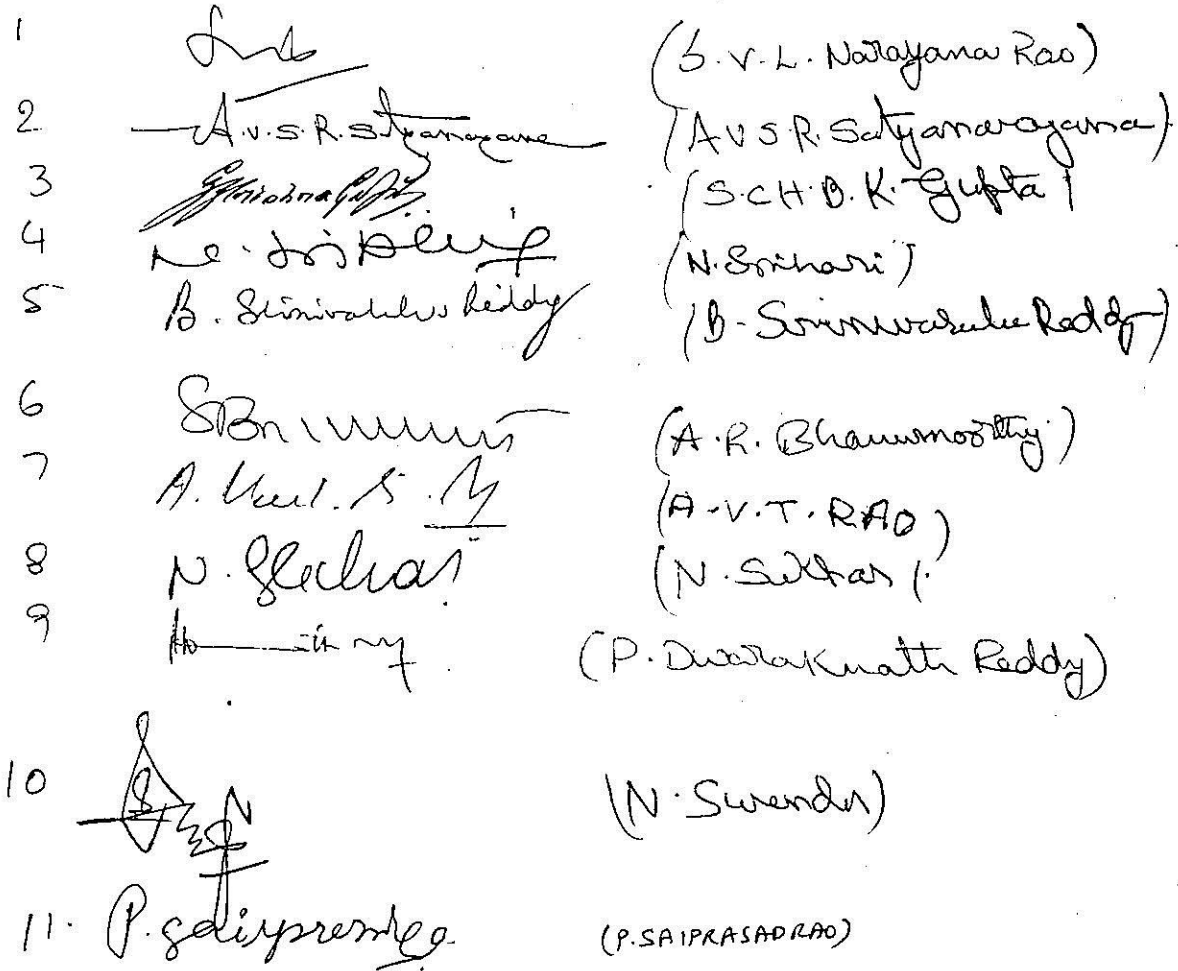 1 (S.V.L. Narayana Rao)
2 A.V.S.R. Satyanarayana (A V S R. Satyanarayana)
3 (S.CH.B.K. Gupta)
4 (N. Srihari)
5 B. Srinivasulu Reddy (B. Srinivasulu Reddy)
6 (A.R. Bhanumoorthy)
7 (A.V.T. RAO)
8 N. Sekhar (N. Sekhar)
9 (P. Dwarakanath Reddy)
10 (N. Surender)
11. (P.SAIPRASADRAO)